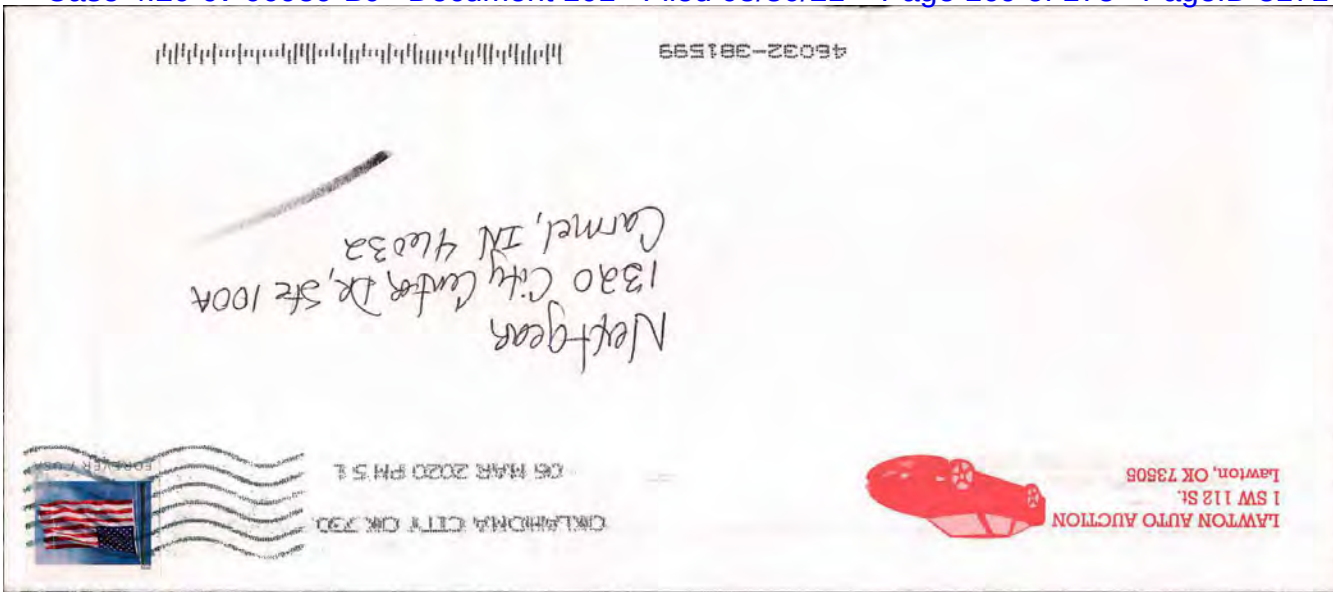 Case Document Filed Page of PageID
LAWTON AUTO AUCTION
1 SW 112 St.
Lawton, OK 73505
OKLAHOMA CITY OK 730
06 MAR 2020 PM 5 L
FOREVER / USA
Nextgear
1320 City Center Dr, Ste 100A
Carmel, IN 46032
46032-381599